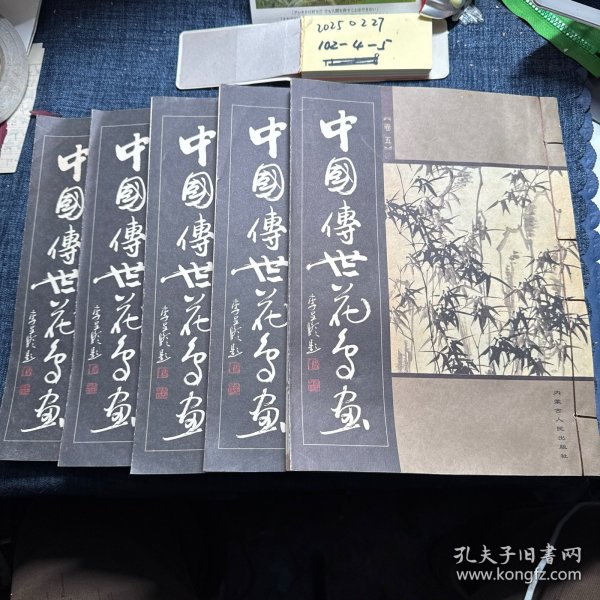 20250227
102-4-5
中國傳世花鳥畫
中國傳世花鳥畫
中國傳世花鳥畫
中國傳世花鳥畫
中國傳世花鳥畫
【卷五】
内蒙古人民出版社
孔夫子旧书网
www.kongfz.com